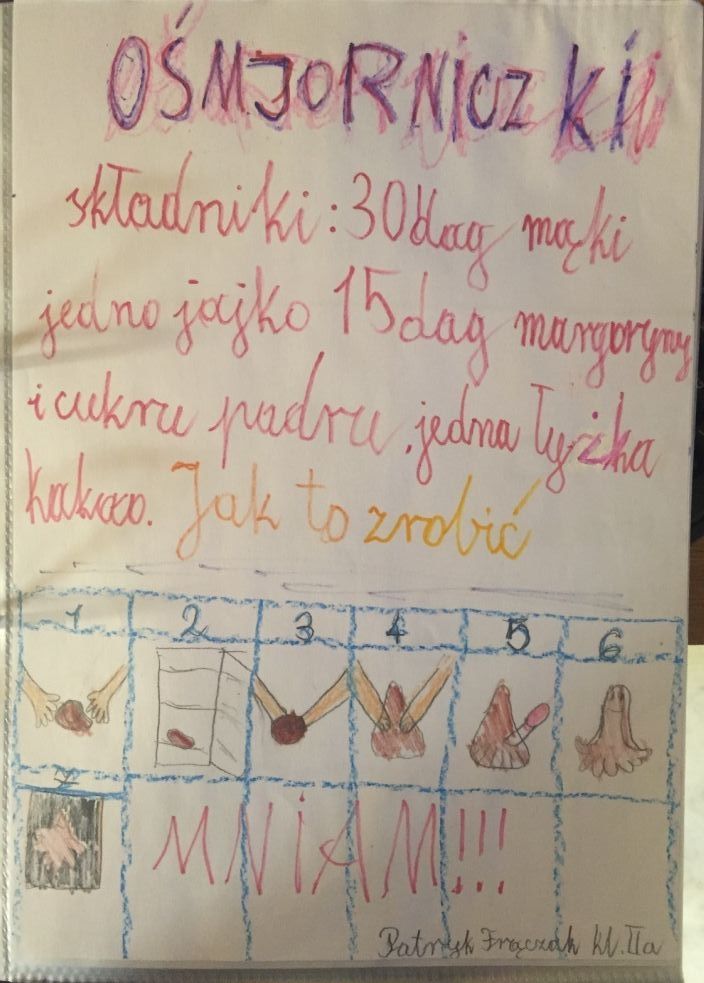 OŚMJORNICZKI
składniki: 30dag mąki
jedno jajko 15dag margoryny
i cukru padru, jedna łyżka
kakao. Jak to zrobić
1 2 3 4 5 6
7
MNIAM!!!
Patryk Frączak kl. IIa